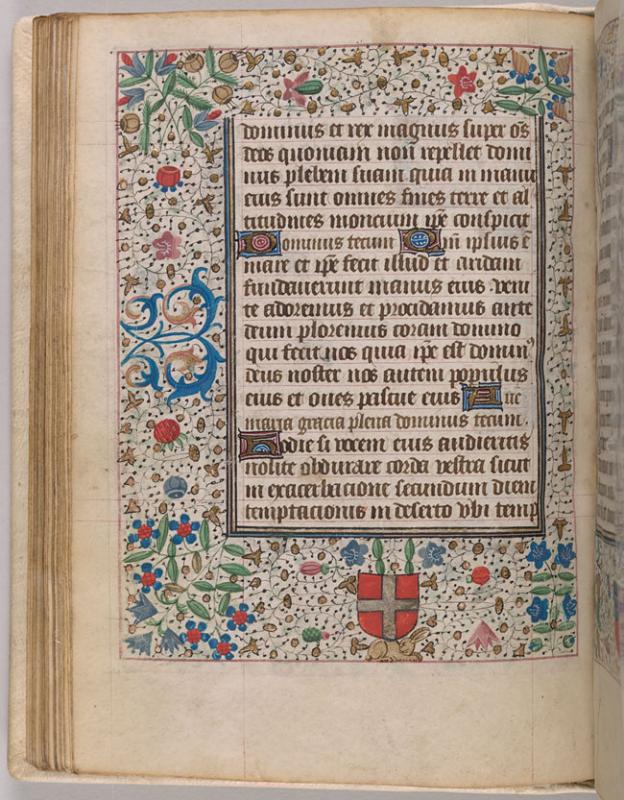 dominus et rex magnus super os
deos quoniam non repellet domi
nus plebem suam quia in manu
eius sunt omnes fines terre et al
titudines moncium ip̄e conspicit
Dominus tecum Qm̄ ipsius ē
mare et ip̄e fecit illud et aridam
fundauerunt manus eius veni
te adoremus et procidamus ante
deum ploremus coram domino
qui fecit nos quia ip̄e est domin⁹
deus noster nos autem populus
eius et oues pascue eius Aue
maria gracia plena dominus tecum.
Hodie si vocem eius audieritis
nolite obdurare corda vestra sicut
in exacerbacione secundum diem
temptacionis in deserto vbi temp